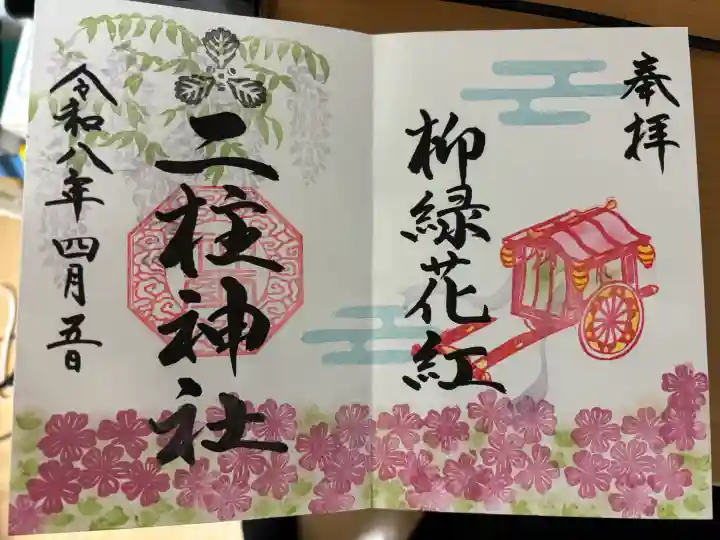 奉拝
柳緑花紅
二柱神社
令和八年四月五日